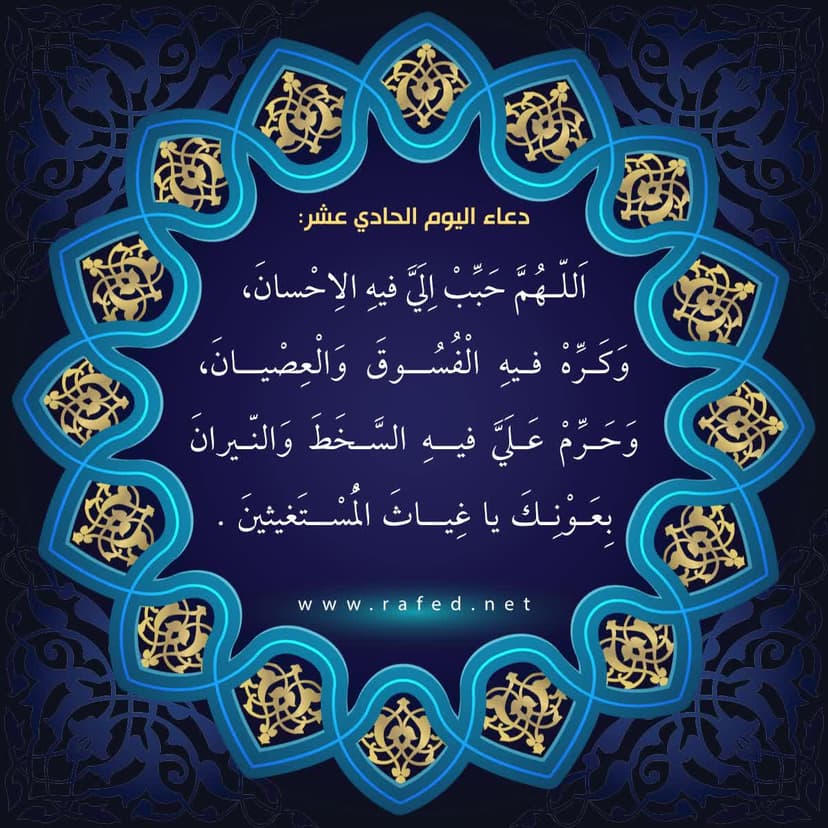 دعاء اليوم الحادي عشر:
اَللّـهُمَّ حَبِّبْ اِلَيَّ فيهِ الاِحْسانَ،
وَكَـرِّهْ فـيهِ الْفُسُـوقَ وَالْعِصْيـانَ،
وَحَـرِّمْ عَـلَيَّ فيـهِ السَّـخَطَ وَالنّـيرانَ
بِعَـوْنِـكَ يا غِيـاثَ الْمُسْـتَغيثينَ .
www.rafed.net